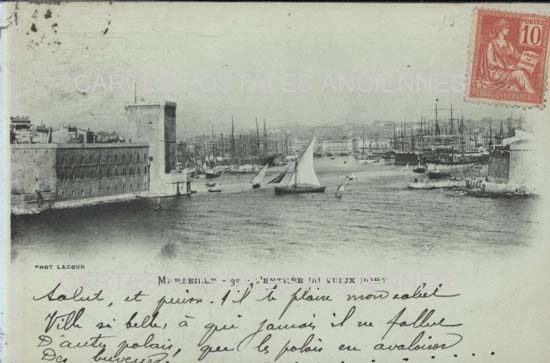 CARTES POSTALES ANCIENNES
POSTES
10
PHOT LACOUR
MARSEILLE - 99 - L'ENTRÉE DU VIEUX PORT
Salut, et puis. s'il te plaire mon salut
Ville si belle, à qui jamais il ne fallut
D'autre palais, que le palais en avaloir
Des buveurs